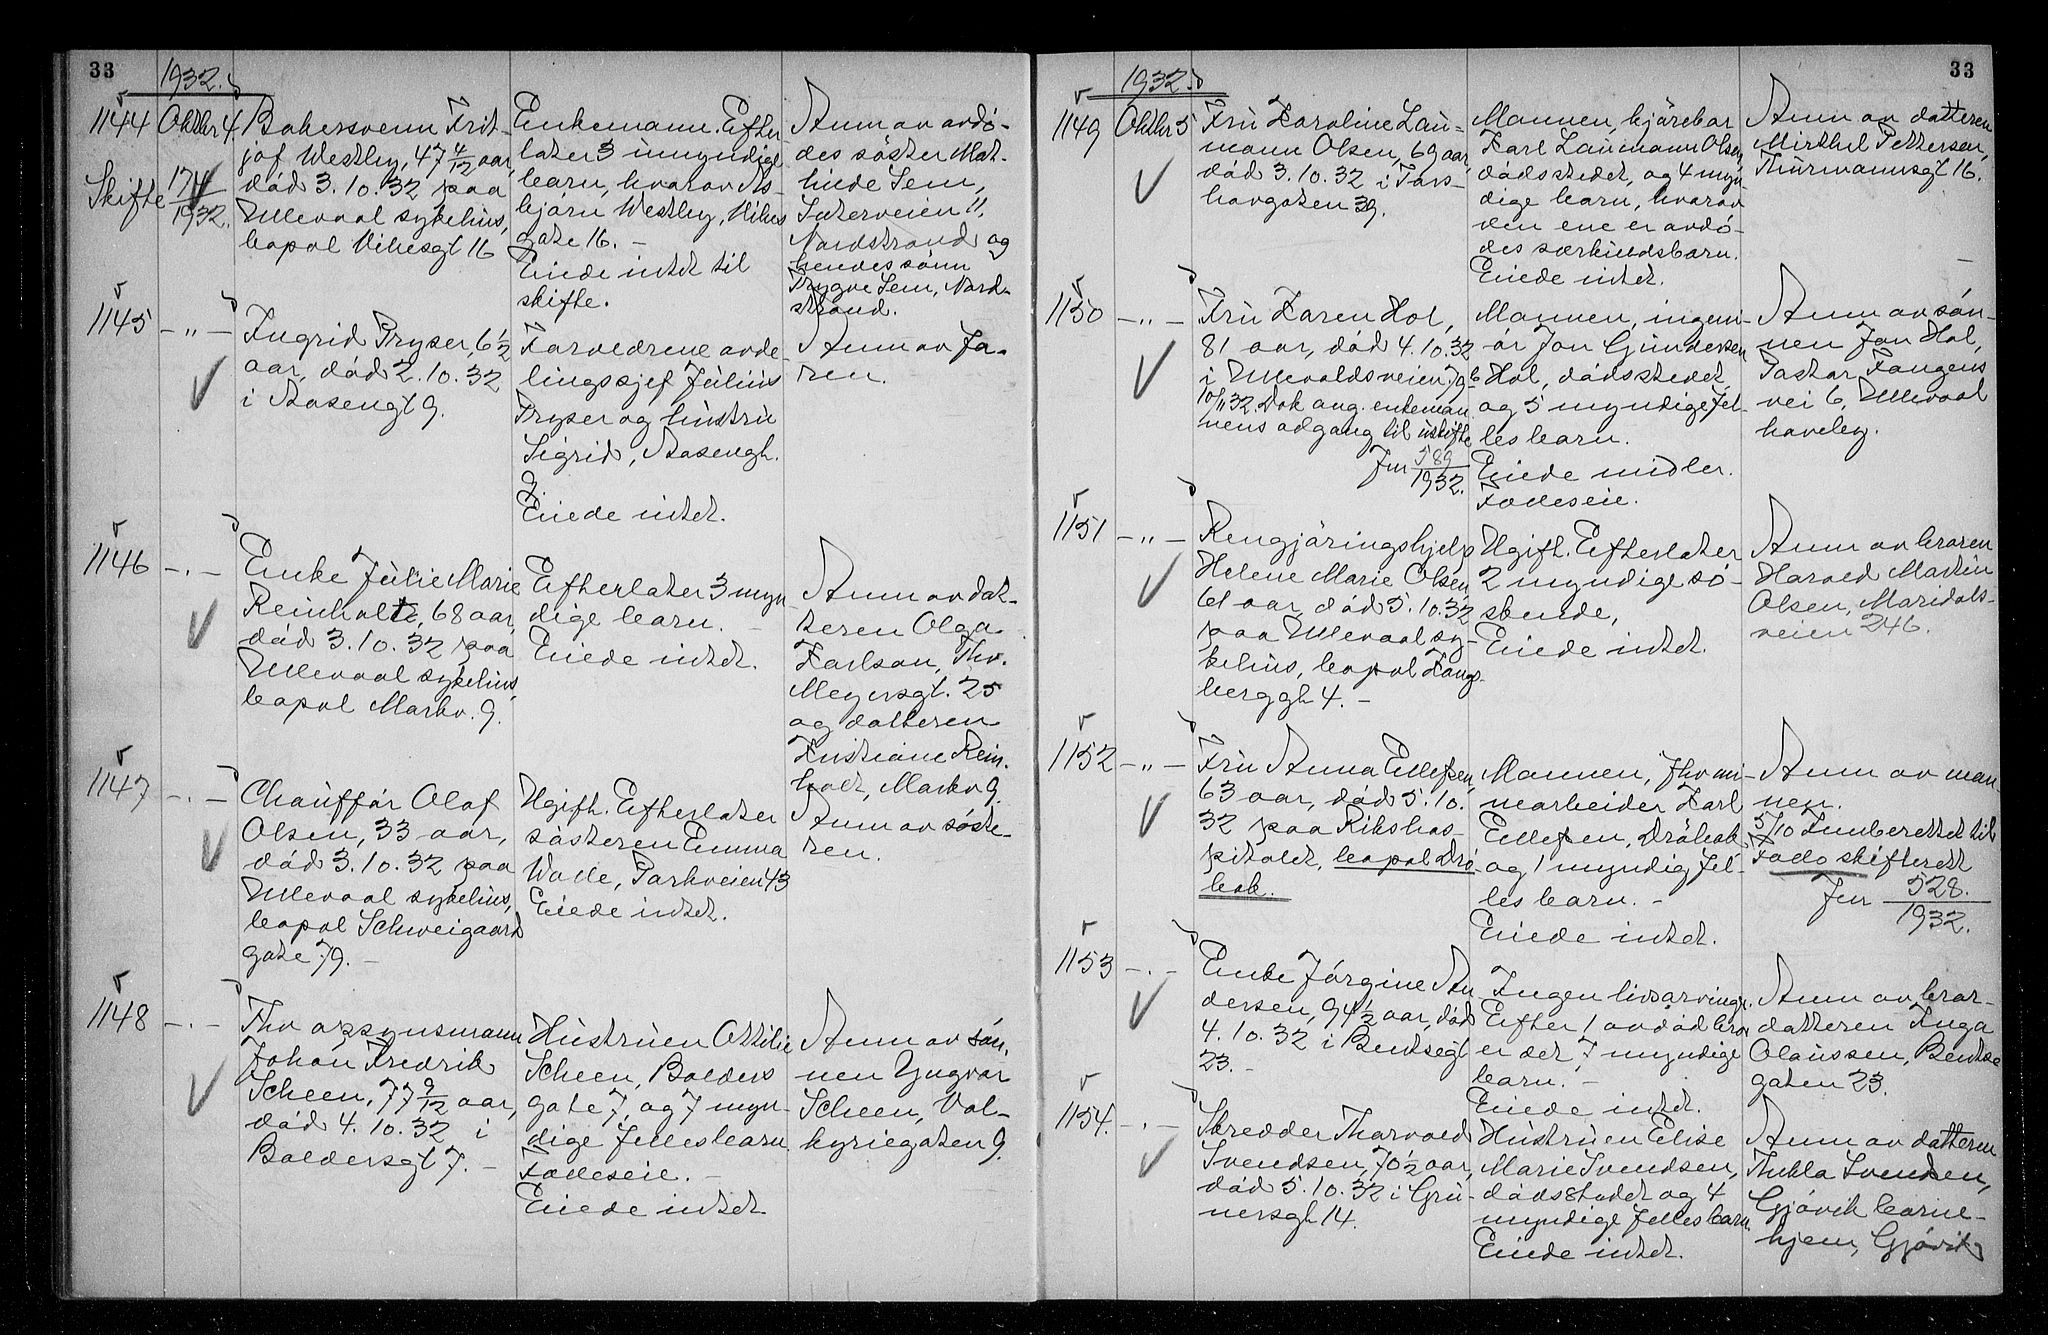 33
1932.
1144 Oktbr 4.
Skifte 174/1932.
Bakersvenn Frit-
jof Westlby, 47 4/12 aar,
död 3.10.32 paa
Ullevaal sykehus,
bopæl Vibesgt 16
Enkemann. Efter-
later 3 umyndige
barn, hvorav As-
bjørn Westby, Vibes
gate 16. -
Eiede intet til
skifte.
Anm av avdø-
des søster Mat-
hilde Sem,
Sæterveien 11,
Nordstrand og
hendes sønn
Trygve Sem, Nord-
strand.
1145 - " -
Ingrid Pryser, 6 1/2
aar, död 2.10.32
i Aasengt 9.
Forældrene avde-
lingssjef Julius
Pryser og hustru
Sigrid, Aasengt.
9
Eiede intet.
Anm av fa-
ren.
1146 - . -
Enke Julie Marie
Reinholtz, 68 aar,
död 3.10.32 paa
Ullevaal sykehus,
bopæl Markv. 9.
Efterlater 3 myn
dige barn. -
Eiede intet.
Anm av dat-
teren Olga
Karlson, Thv.
Meyersgt. 25
og datteren
Kristiane Rein-
holt, Markv 9.
1147 - . -
Chauffør Olaf
Olsen, 33 aar,
död 3.10.32 paa
Ullevaal sykehus,
bopæl Schweigaard
gate 79. -
Ugift. Efterlater
søsteren Emma
Wolle, Parkveien 43
Eiede intet.
Anm av søste-
ren.
1148 - . -
Fhv opsynsmann
Johan Fredrik
Scheen, 77 9/12 aar,
död 4.10.32 i
Baldersgt 7. -
Hustruen Ottilie
Scheen, Balders
gate 7, og 7 myn-
dige fellesbarn
Fælleseie. -
Eiede intet
Anm av søn-
nen Yngvar
Scheen, Val-
kyriegaten 9.
33
1932.
1149 Oktbr 5
Fru Karoline Lau-
mann Olsen, 69 aar,
död 3.10.32 i Tors-
hovgaten 39.
Mannen, kjørekar
Karl Laumann Olsen,
dødsstedet, og 4 myn
dige barn, hvorav
den ene er avdø-
des særkuldsbarn.
Eiede intet.
Anm av datteren
Mirthel Pettersen,
Thurmannsgt 16.
1150 - " -
Fru Karen Hol,
81 aar, död 4.10.32
i Ullevaldsveien 79 b
10/11 32. Dok ang. enkeman
nens adgang til uskifte
Jnr 589/1932.
Mannen, ingeni-
ør Jon Gundersen
Hol, dødsstedet,
og 5 myndige fel-
les barn.
Eiede midler.
Fælleseie.
Anm av søn-
nen Jon Hol,
Pastor Fangens
vei 6, Ullevaal
haveby.
1151 - " -
Rengjøringshjelp
Helene Marie Olsen,
61 aar, död 5.10.32
paa Ullevaal sy-
kehus, bopæl Kongs-
berggt 4. -
Ugift. Efterlater
2 myndige sø-
skende,
Eiede intet.
Anm av broren
Harald Martin
Olsen, Maridals-
veien 246.
1152 - " -
Fru Anna Ellefsen,
63 aar, död 5.10.
32 paa Rikshos-
pitalet, bopæl Drö-
bak.
Mannen, fhv mi-
nearbeider Karl
Ellefsen, Dröbak
og 1 myndig fel-
les barn. -
Eiede intet.
Anm av man
nen.
5/10 Innberettet til
Follo skifterett
Jnr 528./1932.
1153 - . -
Enke Jörgine An
dersen, 94 1/2 aar, död
4.10.32 i Bentsegt
23. -
Ingen livsarvinger.
Efter 1 avdød bror
er det 7 myndige
barn. -
Eiede intet.
Anm av bror-
datteren Inga
Olaussen, Bentse
gaten 23.
1154. - . -
Skredder Thorvald
Svendsen, 70 1/2 aar,
död 5.10.32 i Grü-
nersgt 14.
Hustruen Elise
Marie Svendsen,
dødsstedet og 4
myndige felles barn.
Eiede intet.
Anm av datteren
Thekla Svendsen,
Gjøvik barne-
hjem, Gjøvik